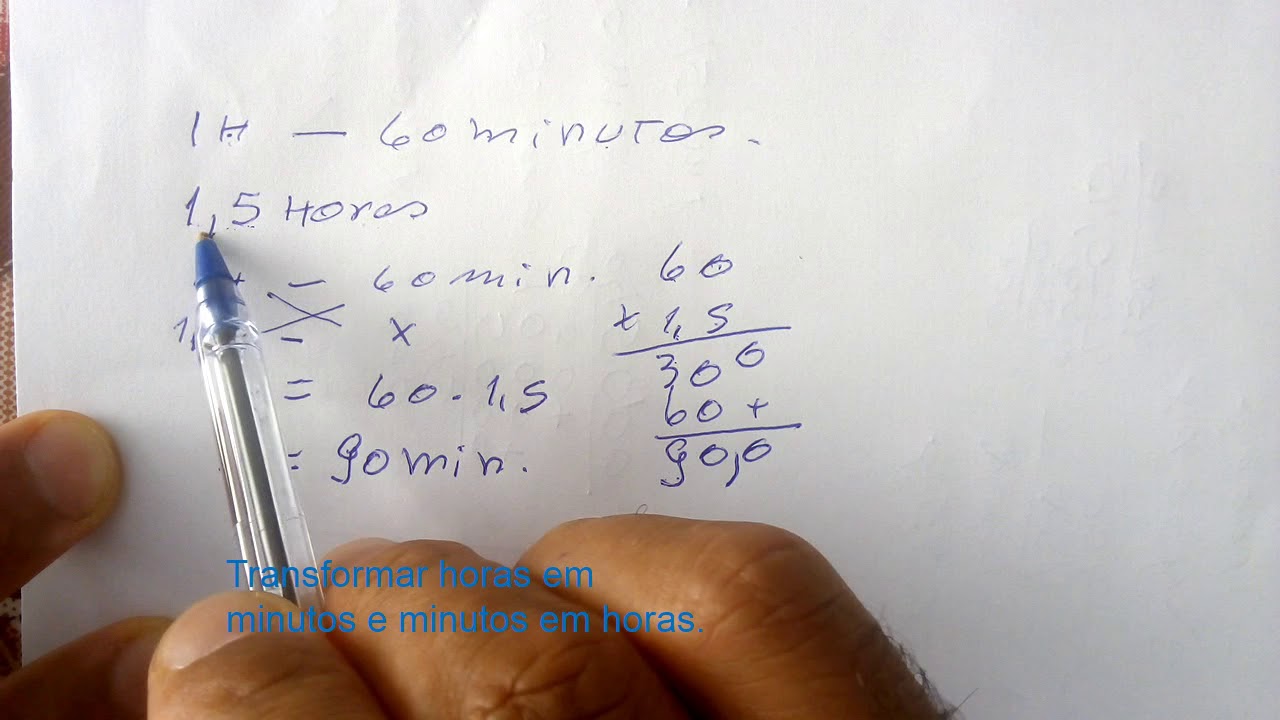 1H — 60 minutos.
1,5 Horas
– 60 min.
1, – x
= 60 . 1,5
= 90 min.
60
x 1,5
300
60 +
90,0
Transformar horas em
minutos e minutos em horas.